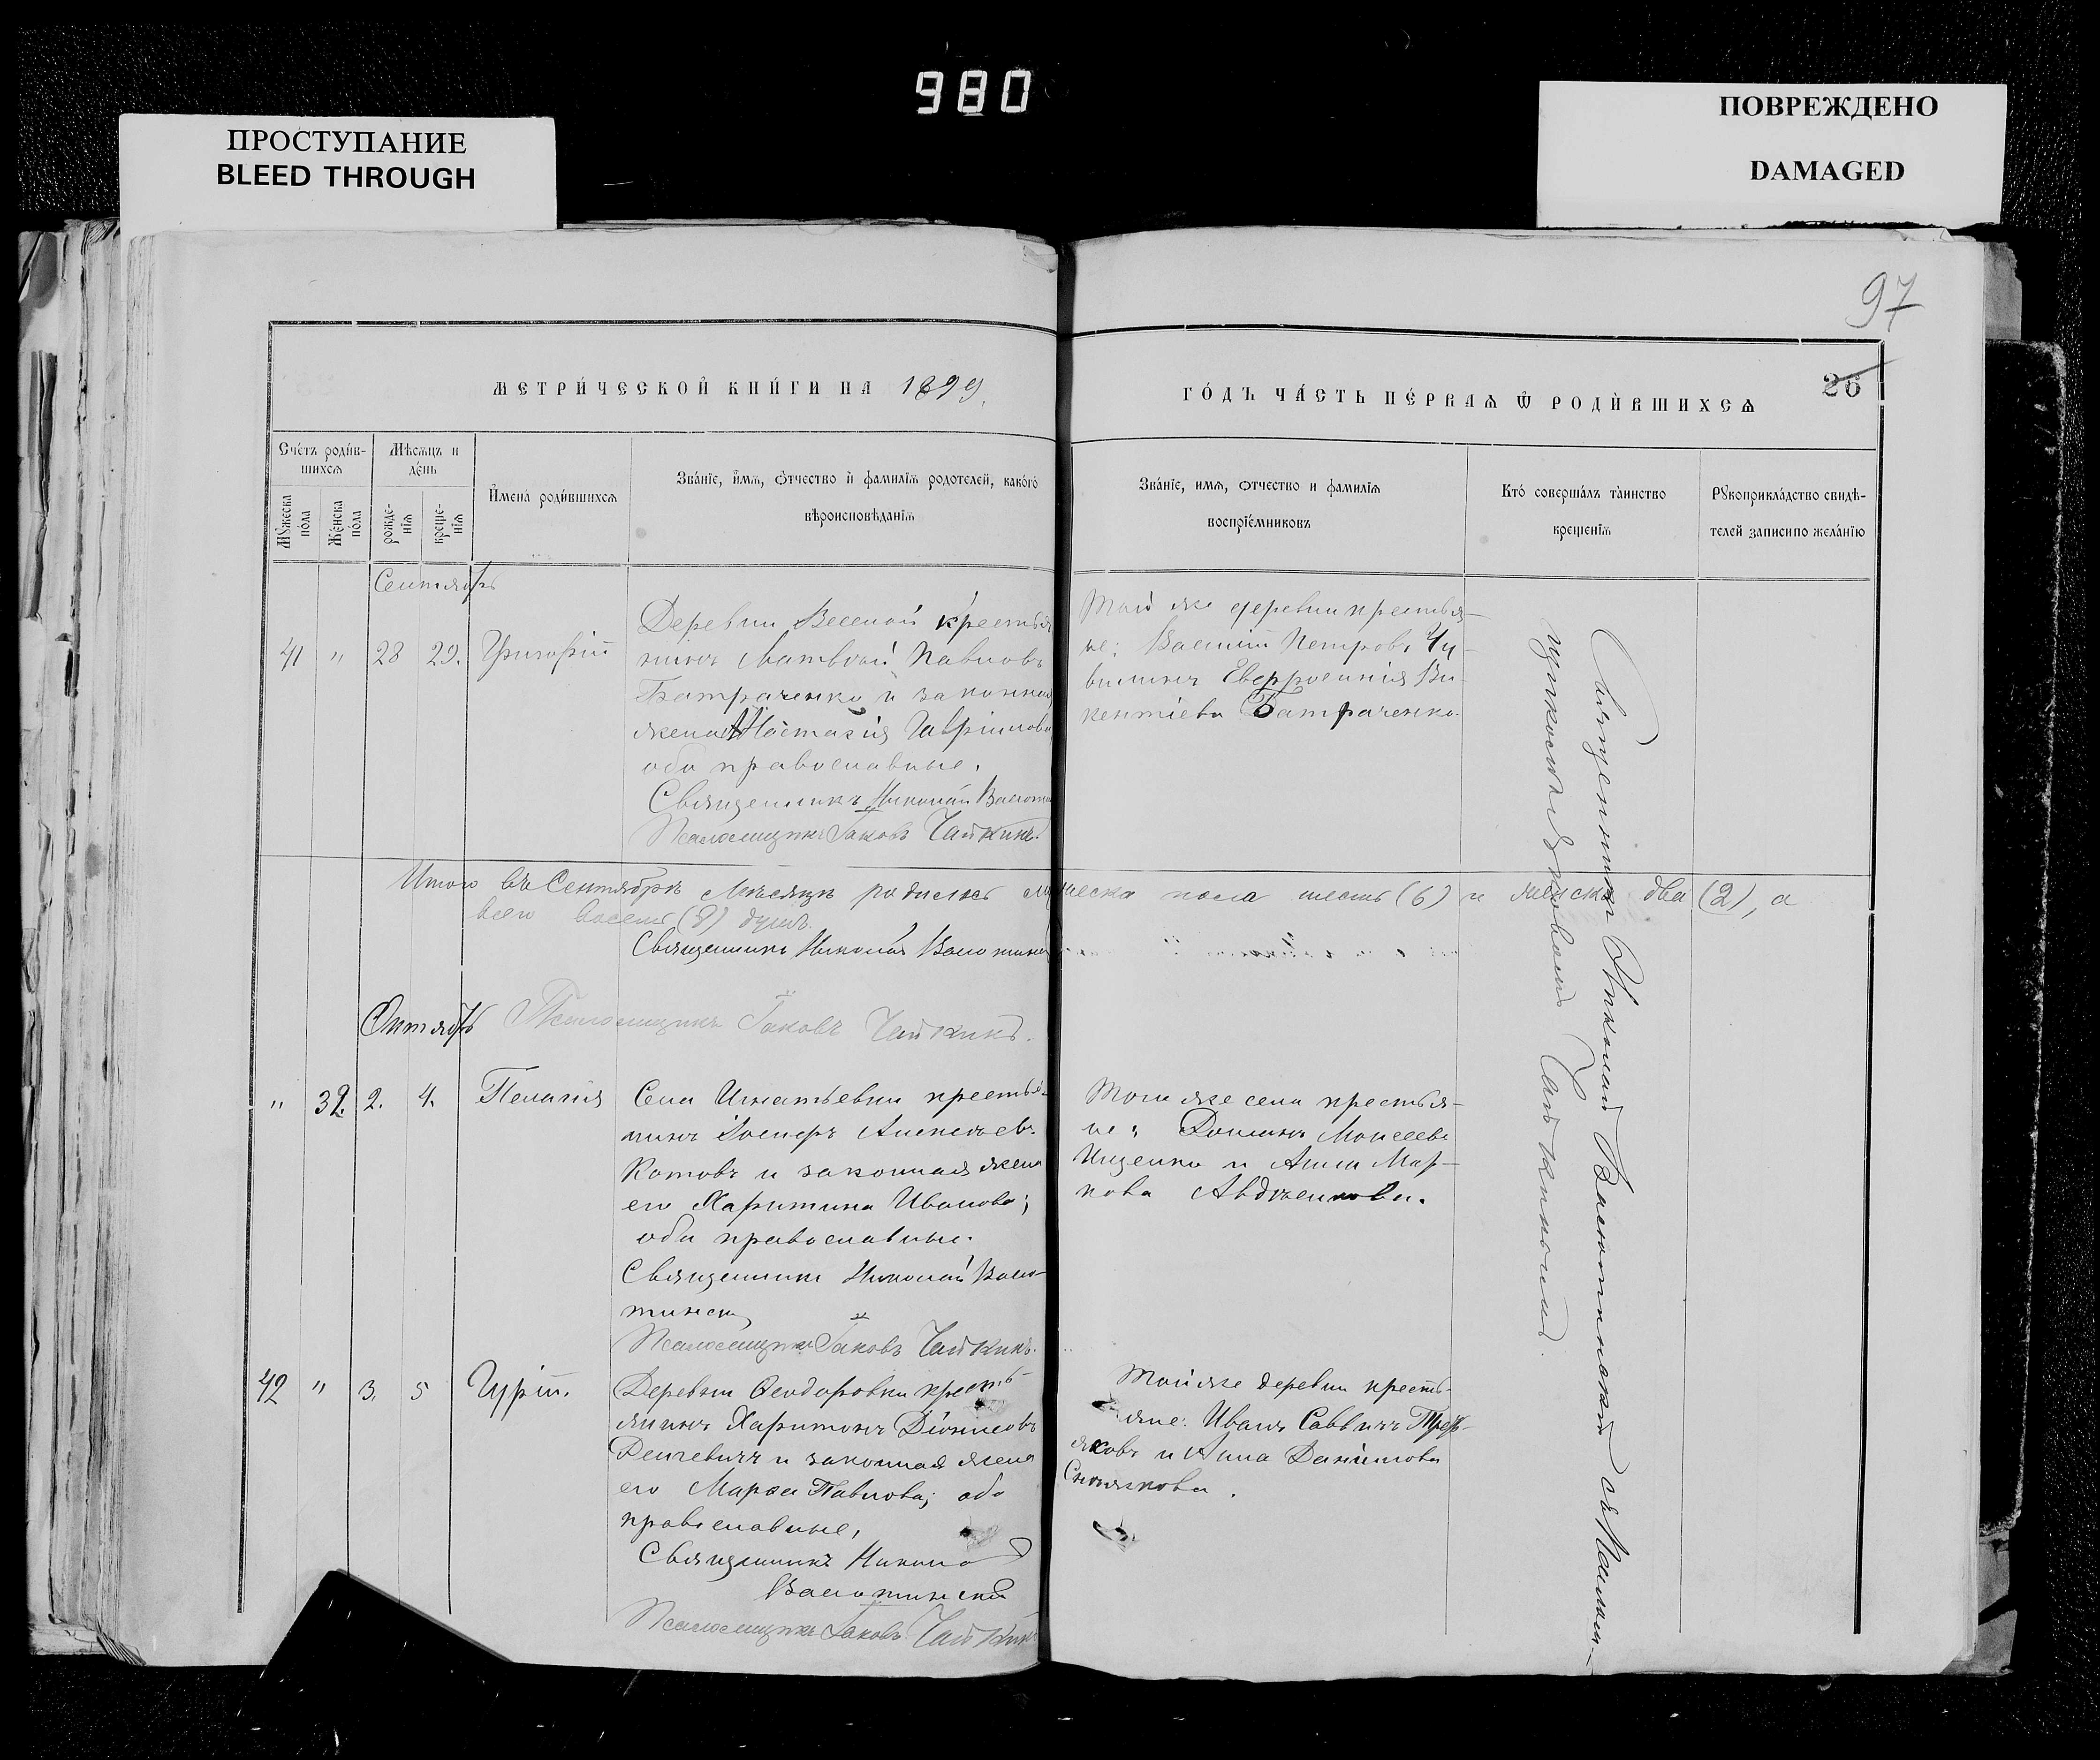 980
ПРОСТУПАНИЕ
BLEED THROUGH
ПОВРЕЖДЕНО
DAMAGED
97
26
МЕТРИ́ЧЕСКОЙ КНИ́ГИ НА 1899
ГО́ДЪ ЧА́СТЬ ПЕ́РВАѦ Ѿ РОДИ́ВШИХСѦ
Сче́тъ роди́в-
шихсѧ
Мꙋжеска по́ла
Же́нска по́ла
Мѣ́сѧцъ и де́нь
рожде-нїѧ
креще-нїѧ
И҆мена̀ роди́вшихсѧ
Зва́нїе, и҆́мѧ, ѻ҆́тчество и҆ фамилїѧ родителей, како́гѡ
вѣроисповѣданїѧ
Зва́нїе, имѧ, ѻтчество и фамилїѧ
воспрїе́мниковъ
Кто̀ соверша́лъ та̀инство
крещенїѧ
Рꙋкоприкла́дство свидѣ-
телей записи по жела́нїю
Сентябрь
41 " 28 29. Григорій
Деревни Веселой крестья
нинъ Матвѣй Павловъ
Батраченко и законная
жена Анастасія Гаврилова
оба православные.
Священникъ Николай
Псаломщикъ Іаковъ Чайкинъ.
Той же деревни крестья-
не: Василій Петровъ Чу-
вилинъ Евфросинія Ви-
кентіева Батраченко.
Итого въ Сентябрѣ мѣсяцѣ родилось мужеска пола шесть (6) и женска два (2), а
всего восемь (8) душъ.
Священникъ Николай
Октябрь
Псаломщикъ Іаковъ Чайкинъ.
" 32. 2. 4. Пелагія
Села Игнатьевки крестья-
нинъ Алексѣевъ
Котовъ и законная жена
его Харитина Иванова;
оба православные.
Священникъ Николай
Псаломщикъ Іаковъ Чайкинъ.
Того же села крестья-
не: Моисеевъ
Ищенко и Анна Мар-
кова Авдѣенкова.
42 " 3. 5 Гурій.
Деревни Ѳеодоровки кресть-
янинъ Харитонъ Діонисовъ
и законная жена
его Марѳа Павлова; оба
православные,
Священникъ Николай
Псаломщикъ Іаковъ Чайкинъ
Той же деревни кресть-
яне: Иванъ Саввинъ Трет-
яковъ и Анна Данилова
Священникъ Николай съ Псалом-
щикомъ Іаковомъ Чайкинымъ.